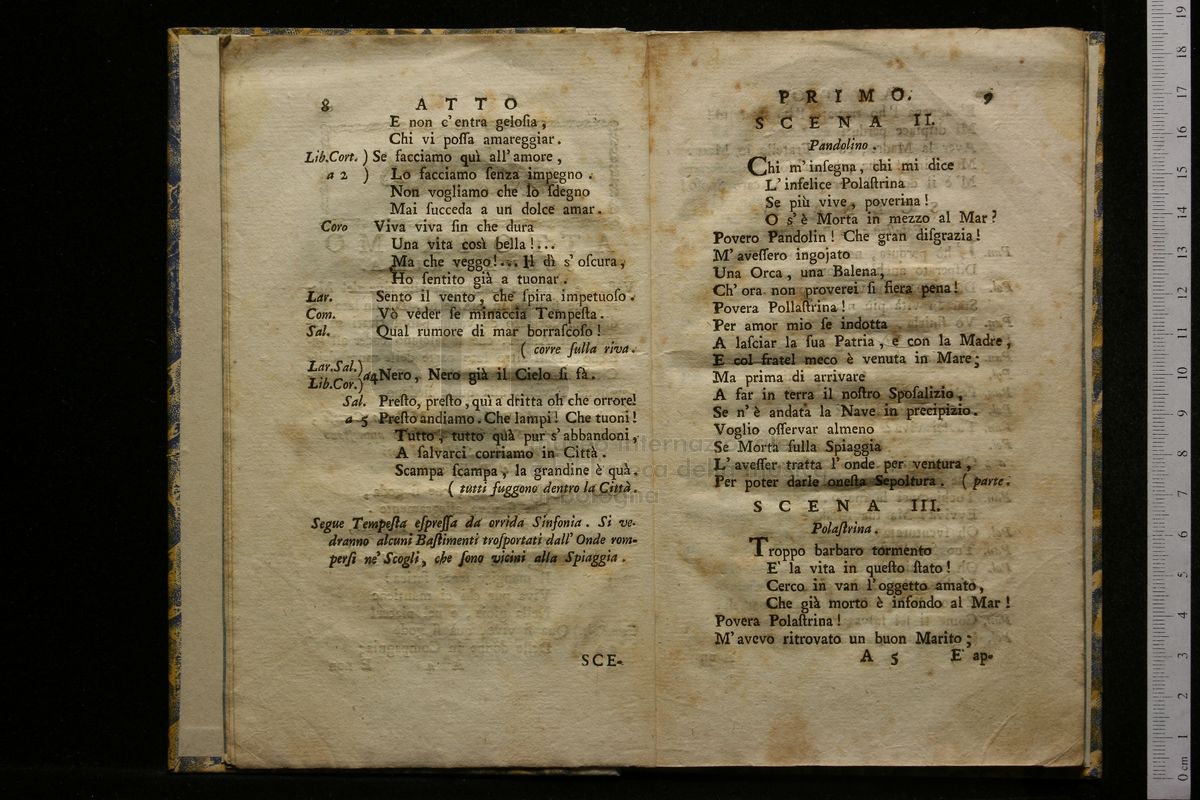 8 ATTO
E non c'entra gelosia,
Chi vi possa amareggiar.
Lib.Cort. ) Se facciamo quì all'amore,
a 2 ) Lo facciamo senza impegno.
Non vogliamo che lo sdegno
Mai succeda a un dolce amar.
Coro Viva viva sin che dura
Una vita così bella!...
Ma che veggo!... Il dì s'oscura,
Ho sentito già a tuonar.
Lar. Sento il vento, che spira impetuoso.
Com. Vò veder se minaccia Tempesta.
Sal. Qual rumore di mar borrascoso!
( corre sulla riva.
Lar.Sal.)
Lib.Cor.) a4 Nero, Nero già il Cielo si fà.
Sal. Presto, presto, quì a dritta oh che orrore!
a 5 Presto andiamo. Che lampi! Che tuoni!
Tutto, tutto quà pur s'abbandoni,
A salvarci corriamo in Città.
Scampa scampa, la grandine è quà.
( tutti fuggono dentro la Città.
Segue Tempesta espressa da orrida Sinfonia. Si ve-
dranno alcuni Bastimenti trosportati dall'Onde rom-
persi ne' Scogli, che sono vicini alla Spiaggia.
SCE-
PRIMO. 9
SCENA II.
Pandolino.
Chi m'insegna, chi mi dice
L'infelice Polastrina
Se più vive, poverina!
O s'è Morta in mezzo al Mar?
Povero Pandolin! Che gran disgrazia!
M'avessero ingojato
Una Orca, una Balena,
Ch'ora non proverei sì fiera pena!
Povera Pollastrina!
Per amor mio se indotta
A lasciar la sua Patria, e con la Madre,
E col fratel meco è venuta in Mare;
Ma prima di arrivare
A far in terra il nostro Sposalizio,
Se n'è andata la Nave in precipizio.
Voglio osservar almeno
Se Morta sulla Spiaggia
L'avesser tratta l'onde per ventura,
Per poter darle onesta Sepoltura. ( parte.
SCENA III.
Polastrina.
Troppo barbaro tormento
E' la vita in questo stato!
Cerco in van l'oggetto amato,
Che già morto è infondo al Mar!
Povera Polastrina!
M'avevo ritrovato un buon Marito;
A 5 E ap-